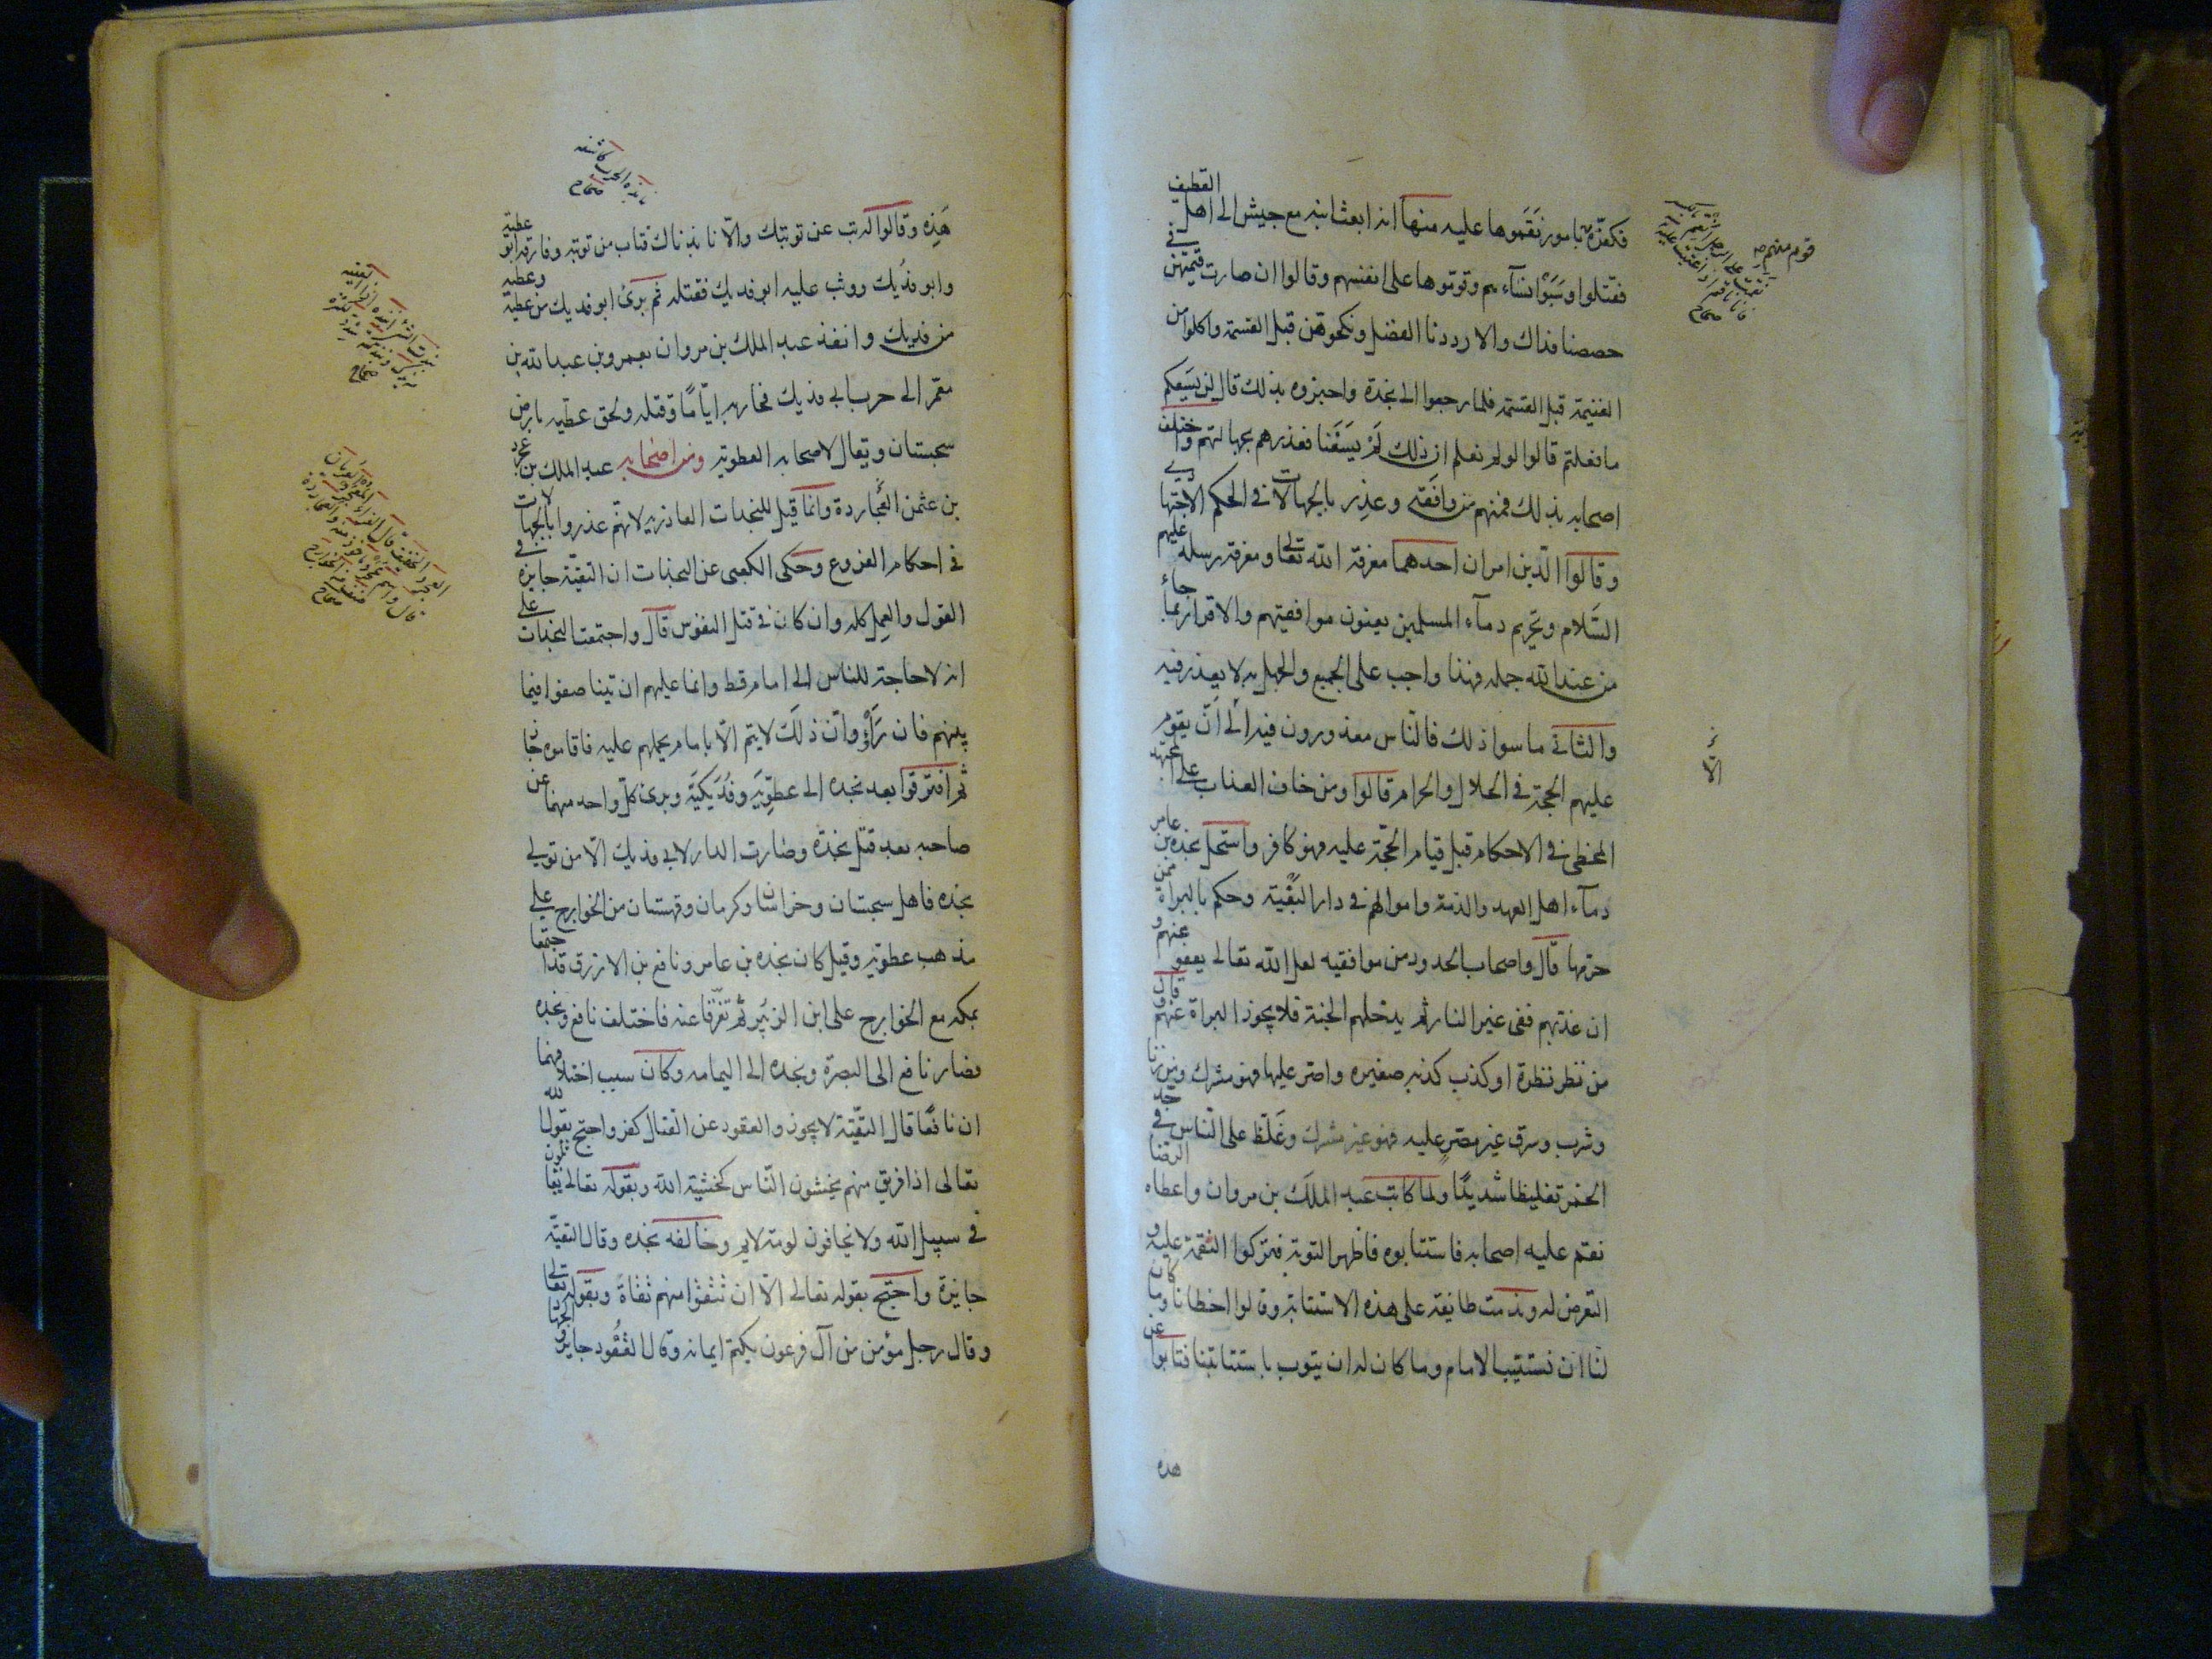 فكفّره بامور نَقَموها عليه منها انه ابعث ابنه مع جيش الى اهل القطيف
فقتلوا وسَبَوْا نسآءهم وقوّموها على انفسهم وقالوا ان صارت قيمتهن في
حصصنا فذاك والا رددنا الفضل ونكحوهن قبل القسمة واكلوا من
الغنيمة قبل القسمة فلما رجعوا الى نجدة واخبروه بذلك قال لم يسعكم
ما فعلتم قالوا لو لم نعلم ان ذلك لَمْ يَسَعْنا فعذرهم بجهالتهم واختلف
اصحابه بذلك فمنهم من وافَقَه وعذِر بالجهالات في الحكم الاجتهادي
وقالوا الدّين امران احدهما معرفة الله تعالى ومعرفة رسله عليهم
السَّلام وتحريم دمآء المسلمين يعنون موافقيهم والاقرار بما جاء
من عند الله جملة فهذا واجب على الجميع والجهل به لا يعذر فيه
والثاني ما سوا ذلك فالنّاس معذورون فيه الى اَنْ يقوم
عليهم الحجّة في الحلال والحرام قالوا ومن خاف العذاب على المجتهد
المخطى في الاحكام قبل قيام الحجّة عليه فهو كافر واستحل نجدة بن عامر
دمآء اهل العهد والذمة واموالهم في دار التقيّة وحكم بالبراة ممن
حرّمها قال واصحاب الحدود من موافقيه لعل الله تعالى يعفو عنهم و
ان عذّبهم ففى غير النار ثم يدخلهم الجنة فلا يجوز البراة عنهم قال و
من نظر نظرة او كذب كذبة صغيره واصر عليها فهو مشرك ومن زنا
وشرب وسرق غير مصرٍ عليه فهو غير مشرك وغَلّظ على النّاس في حد
الخمر تغليظا شديدًا ولما كاتب عبد الملك بن مروان واعطاه الرضا
نقم عليه اصحابه فاستتابوه فاظهر التوبة فتركوا النقمة عليه و
التعرض له وندمت طائفة على هذه الاستتابة وقالوا اخطانا وما كان
لنا ان نستتيب الامام وما كان له ان يتوب باستتابتنا فتابوا عن
هذه
قوم منهم صح
الّا
صحاح
هَذِه وقالوا له تب عن توبتك والّا نابذناك فتاب من توبته وفارقه ابو عطيه
وابو فُدَيك ووثب عليه ابو فديك فقتله ثم برئ ابو فديك من عطية وعطيه
من فديك وانفذ عبد الملك بن مروان بعمرو بن عبدالله بن
معمّر الى حرب ابى فديك فحاربه ايّامًا وقتله ولحق عطيه بارض
سجستان ويقال لاصحابه العطويّه ومن اصحابه عبد الملك بن عجرد
بن عثمن العَجاردة وانّما قيل للنجدات العاذريه لانهم عذروا بالجهالات
في احكام الفروع وحكى الكعبى عن النجدات ان التقيّة جايزه في
القول والعمل كله وان كان في قتل النفوس قال واجتمعت النجدات على
انه لا حاجة للناس الى امام قط وانما عليهم ان يتناصفوا فيما
بينهم فان رَأَوْا انّ ذلك لا يتم الّا بامام يحملهم عليه فاقاموه جاز
ثم افترقوا بعد نجده الى عطويّة وفُدَيكيّة وبرئ كلّ واحد منهما عن
صاحبه بعد قتل نجدة وصارت الدار لابى فديك الّا من تولى
نجده فاهل سجستان وخراسان وكرمان وقهستان من الخوارج على
مذهب عطويّه وقيل كان نجده بن عامر ونافع بن الازرق قد اجتمعا
بمكه مع الخوارج على ابن الزبير ثم تفرّقا عنه فاختلف نافع ونجده
فصار نافع الى البصرة ونجده الى اليمامه وكان سبب اختلافهما
ان نافعًا قال التقيّة لا يجوز والقعود عن القتال كفر واحتج بقول الله
تعالى اذا فريق منهم يخشون النّاس كخشية الله وبقوله تعالى يقاتلون
في سبيل الله ولا يخافون لومة لايم وخالفه نجده وقال التقيّة
جايزة واحتج بقوله تعالى الّا ان تتّقوا منهم تُقاةً وبقوله تعالى
وقال رجل مؤمن من آل فرعون يكتم ايمانه وقال القُعُود جايز والجهاد
نابذه الحرب كاشفه
صحاح
صحاح
صحاح